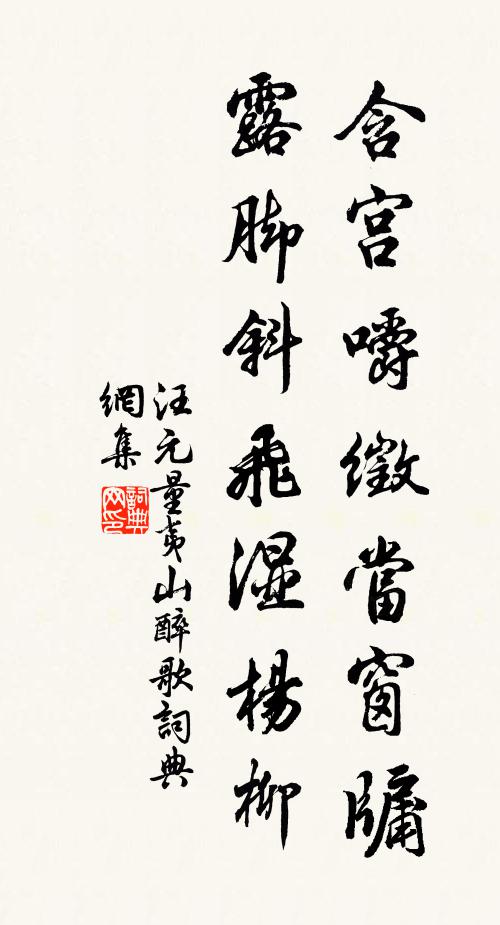 含宫嚼徵當窗牖
露脚斜飛湿楊柳
汪元量夷山醉歌詞典
網集
詞典
网印